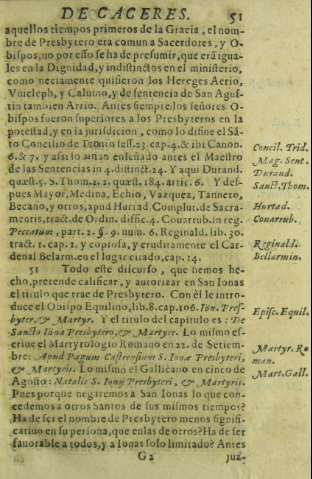 DE CACERES. 51
aquellos tiempos primeros de la Gracia, el nom-
bre de Presbytero era comun a Sacerdotes, y O-
bispos, no por esso se ha de presumir, que erã igua-
les en la Dignidad, y indistinctos en el ministerio,
como neciamente quisieron los Hereges Aerio,
Vuicleph, y Caluino, y de sentencia de San Agus-
tin tambien Arrio. Antes siempre los señores O-
bispos fueron superiores a los Presbyteros en la
potestad, y en la jurisdicion, como lo difine el Sã-
to Concilio de Trento sess. 23. cap. 4. & ibi Canon.
6. & 7. y assi lo auian enseñado antes el Maestro
de las Sentencias in 4. distinct. 24. Y aqui Durand.
quæst. 5. S. Thom. 2. 2. quæst. 184. artic. 6. Y des-
pues Mayor, Medina, Echio, Vazquez, Tannero,
Becano, y otros, apud Hurtad. Complut. de Sacra-
mentis, tract. de Ordin. diffic. 4. Couarrub. in reg.
Peccatum, part. 2. §. 9. num. 6. Reginald. lib. 30.
tract. 1. cap. 2. y copiosa, y eruditamente el Car-
denal Belarm. en el lugar citado, cap. 14.
51 Todo este discurso, que hemos he-
cho, pretende calificar, y autorizar en San Ionas
el titulo que trae de Presbytero. Con èl le intro-
duce el Obispo Equilino, lib. 8. cap. 106. Ion. Pres-
byter, & Martyr. Y el titulo del capitulo es: De
Sancto Iona Presbytero, & Martyre. Lo mismo es-
criue el Martyrologio Romano en 22. de Setiem-
bre: Apud Pagum Castrensium S. Ionæ Presbyteri,
& Martyris. Lo mismo el Gallicano en cinco de
Agosto: Natalis S. Ionæ Presbyteri, & Martyris.
Pues porque negaremos a San Ionas lo que con-
cedemos a otros Santos de sus mismos tiempos?
Ha de ser el nombre de Presbytero menos signifi-
catiuo en su persona, que en las de otros? Ha de ser
fauorable a todos, y a Ionas solo limitado? Antes
G 2 juz-
Concil. Trid.
Mag. Sent.
Durand.
Sanct. Thom.
Hurtad.
Couarrub.
Reginaldi.
Bellarmin.
Episc. Equil.
Martyr. Ro
man.
Mart. Gall.